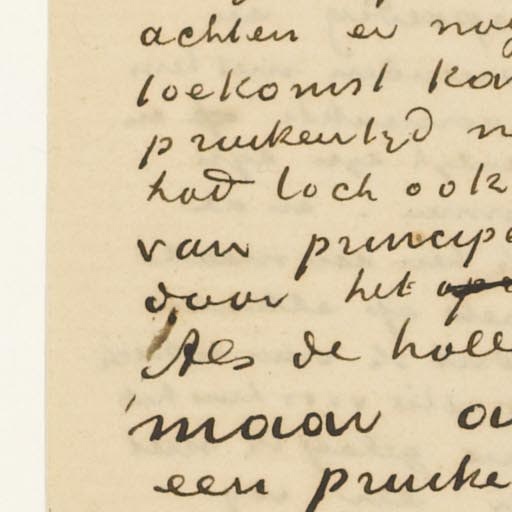 achten er nog
toekomst ka
pruikentyd n
had toch ook
van princip
door het
Als de holl
maar
een pruike